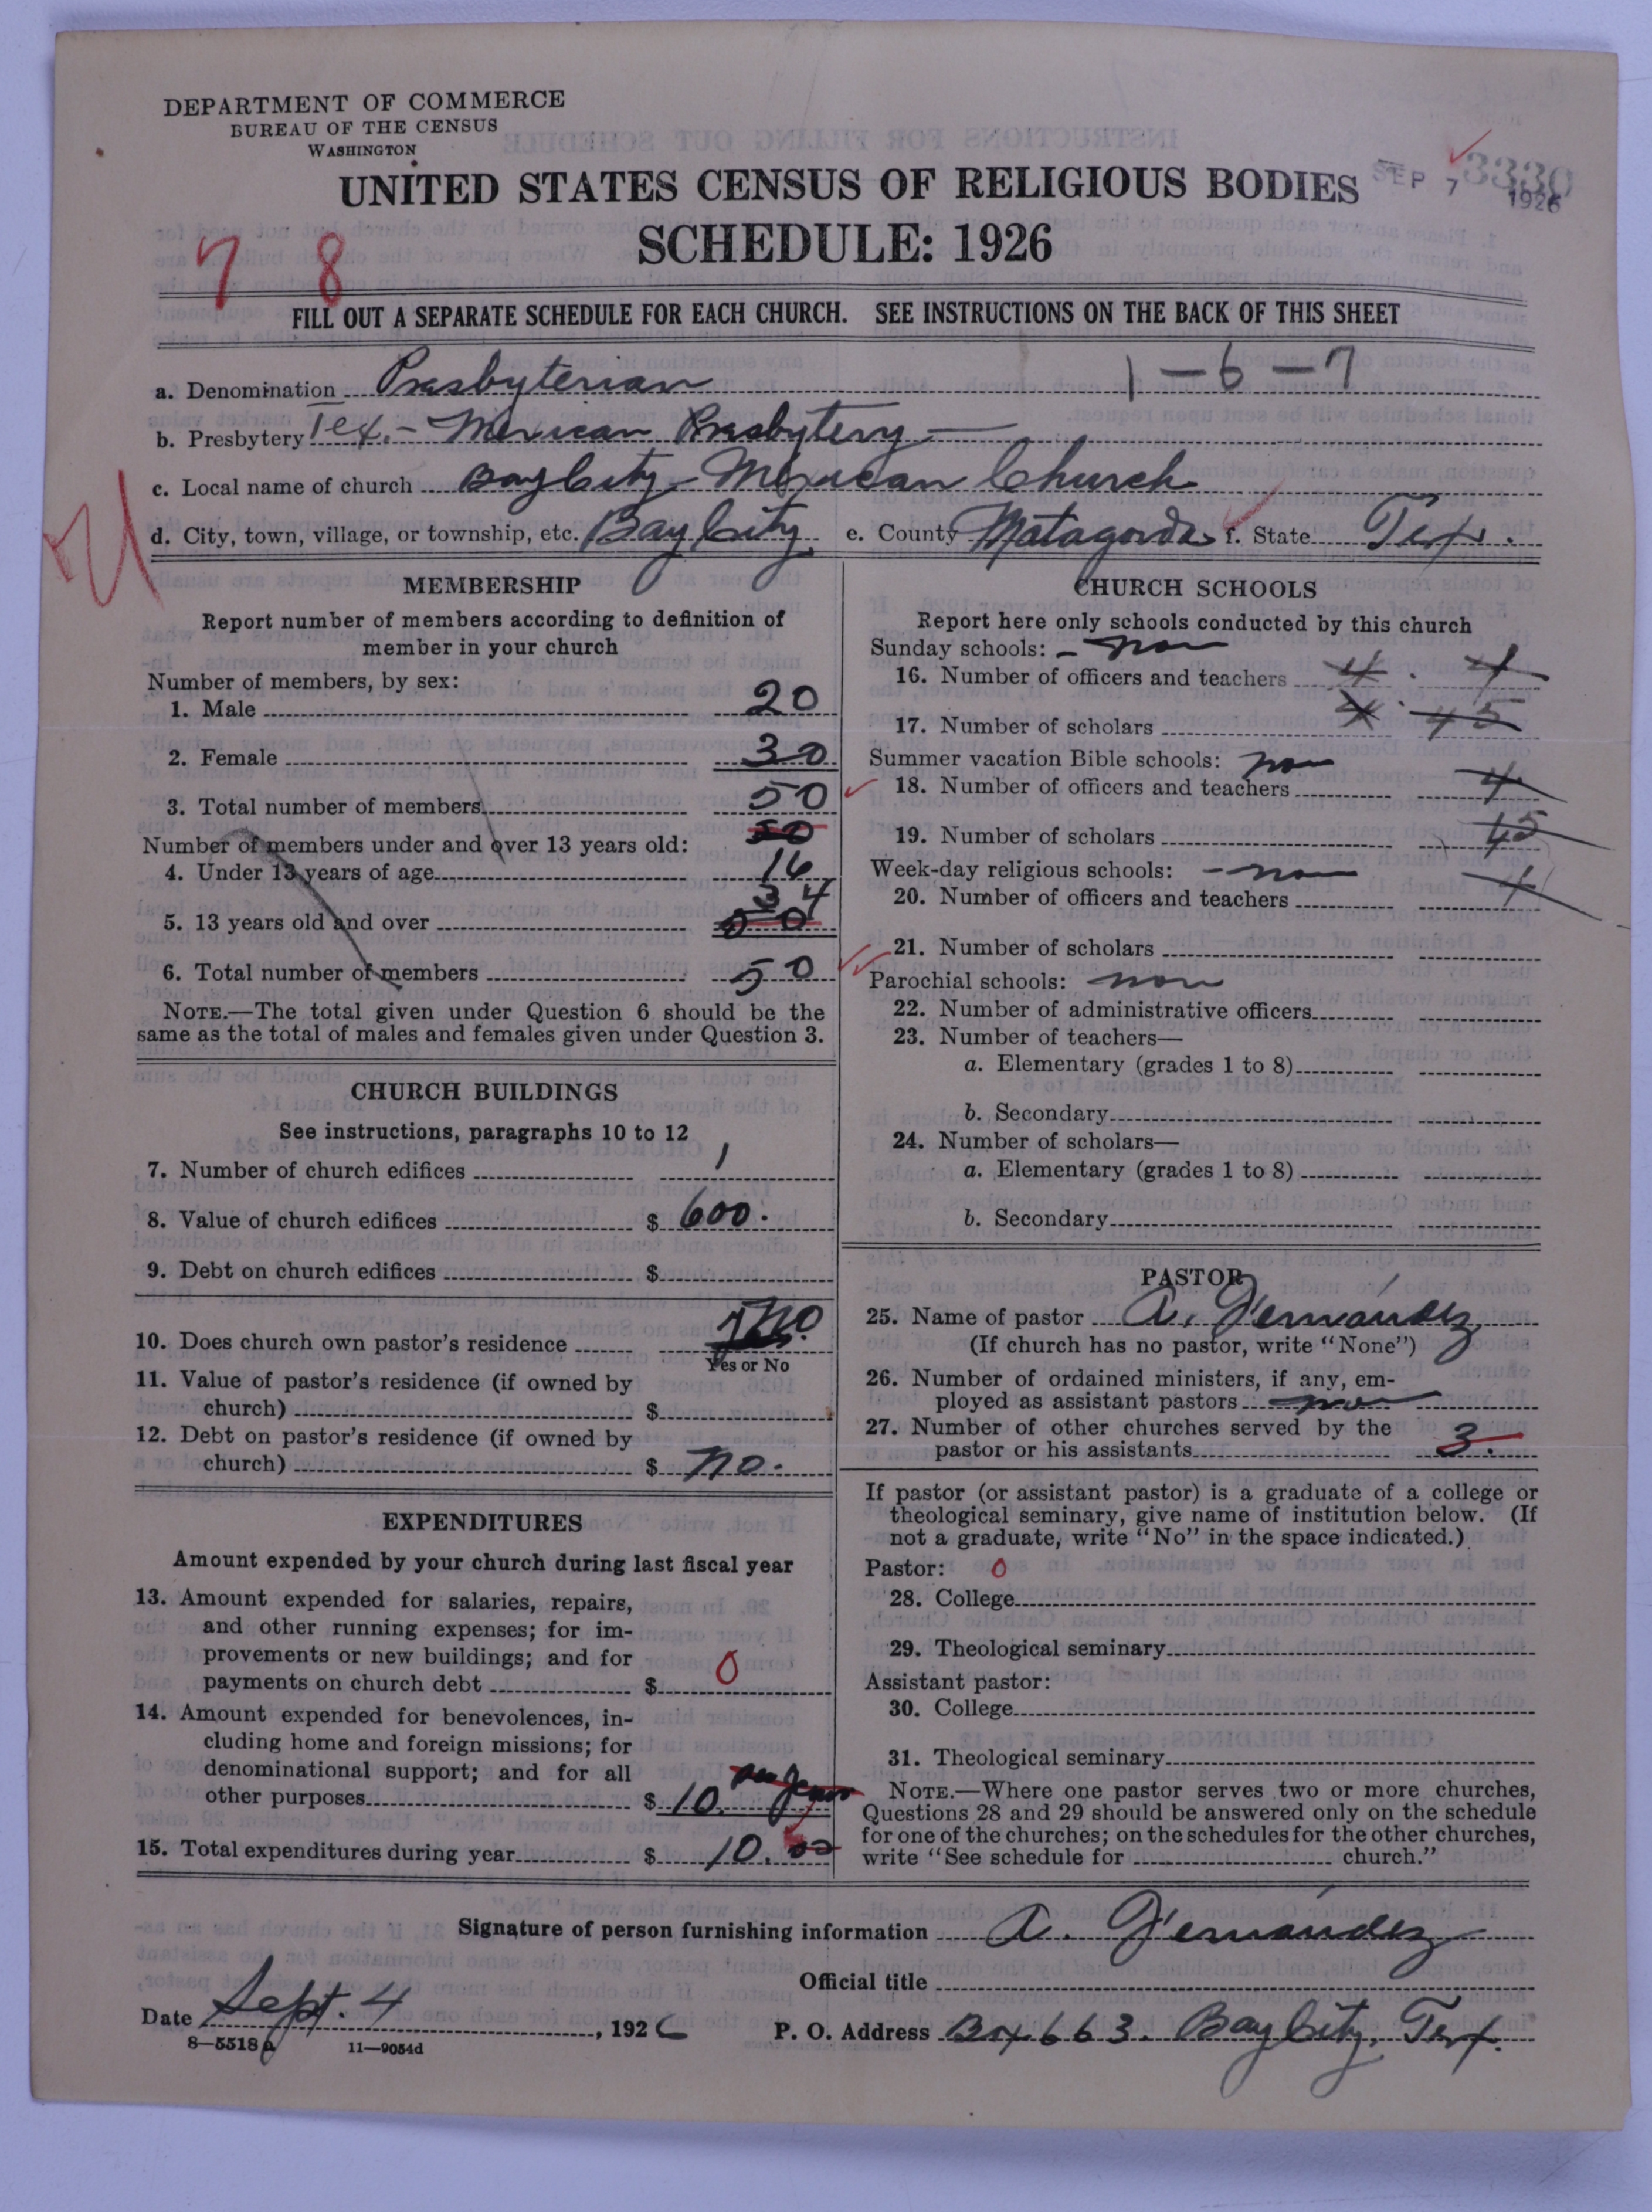 DEPARTMENT OF COMMERCE
BUREAU OF THE CENSUS
WASHINGTON
UNITED STATES CENSUS OF RELIGIOUS BODIES
SEP 7 1926
3330
SCHEDULE: 1926
7 8
FILL OUT A SEPARATE SCHEDULE FOR EACH CHURCH. SEE INSTRUCTIONS ON THE BACK OF THIS SHEET
a. Denomination Presbyterian 1-6-7
b. Presbytery Tex.- Mexican Presbytery
c. Local name of church Bay City Mexican Church
d. City, town, village, or township, etc. Bay City e. County Matagorda f. State Tex.
MEMBERSHIP
Report number of members according to definition of
member in your church
Number of members, by sex:
1. Male 20
2. Female 30
3. Total number of members 50
50
Number of members under and over 13 years old:
4. Under 13 years of age 16
34
5. 13 years old and over 50
6. Total number of members 50
NOTE.—The total given under Question 6 should be the
same as the total of males and females given under Question 3.
CHURCH BUILDINGS
See instructions, paragraphs 10 to 12
7. Number of church edifices 1
8. Value of church edifices $ 600.
9. Debt on church edifices $
10. Does church own pastor's residence no
Yes or No
11. Value of pastor's residence (if owned by
church) $
12. Debt on pastor's residence (if owned by
church) $ no.
EXPENDITURES
Amount expended by your church during last fiscal year
13. Amount expended for salaries, repairs,
and other running expenses; for im-
provements or new buildings; and for
payments on church debt $ 0
14. Amount expended for benevolences, in-
cluding home and foreign missions; for
denominational support; and for all
other purposes $ 10. per year
15. Total expenditures during year $ 10.00
CHURCH SCHOOLS
Report here only schools conducted by this church
Sunday schools: - non
16. Number of officers and teachers 4. 4
17. Number of scholars 45
Summer vacation Bible schools: non
18. Number of officers and teachers 4
19. Number of scholars 45
Week-day religious schools: - non
20. Number of officers and teachers 4
21. Number of scholars
Parochial schools: non
22. Number of administrative officers
23. Number of teachers—
a. Elementary (grades 1 to 8)
b. Secondary
24. Number of scholars—
a. Elementary (grades 1 to 8)
b. Secondary
PASTOR
25. Name of pastor A. Fernández
(If church has no pastor, write "None")
26. Number of ordained ministers, if any, em-
ployed as assistant pastors non
27. Number of other churches served by the
pastor or his assistants 3.
If pastor (or assistant pastor) is a graduate of a college or
theological seminary, give name of institution below. (If
not a graduate, write "No" in the space indicated.)
Pastor: 0
28. College
29. Theological seminary
Assistant pastor:
30. College
31. Theological seminary
NOTE.—Where one pastor serves two or more churches,
Questions 28 and 29 should be answered only on the schedule
for one of the churches; on the schedules for the other churches,
write "See schedule for church."
Signature of person furnishing information A. Fernández
Official title
Date Sept. 4, 1926
P. O. Address Box 663. Bay City, Tex.
8—5518a 11—9054d